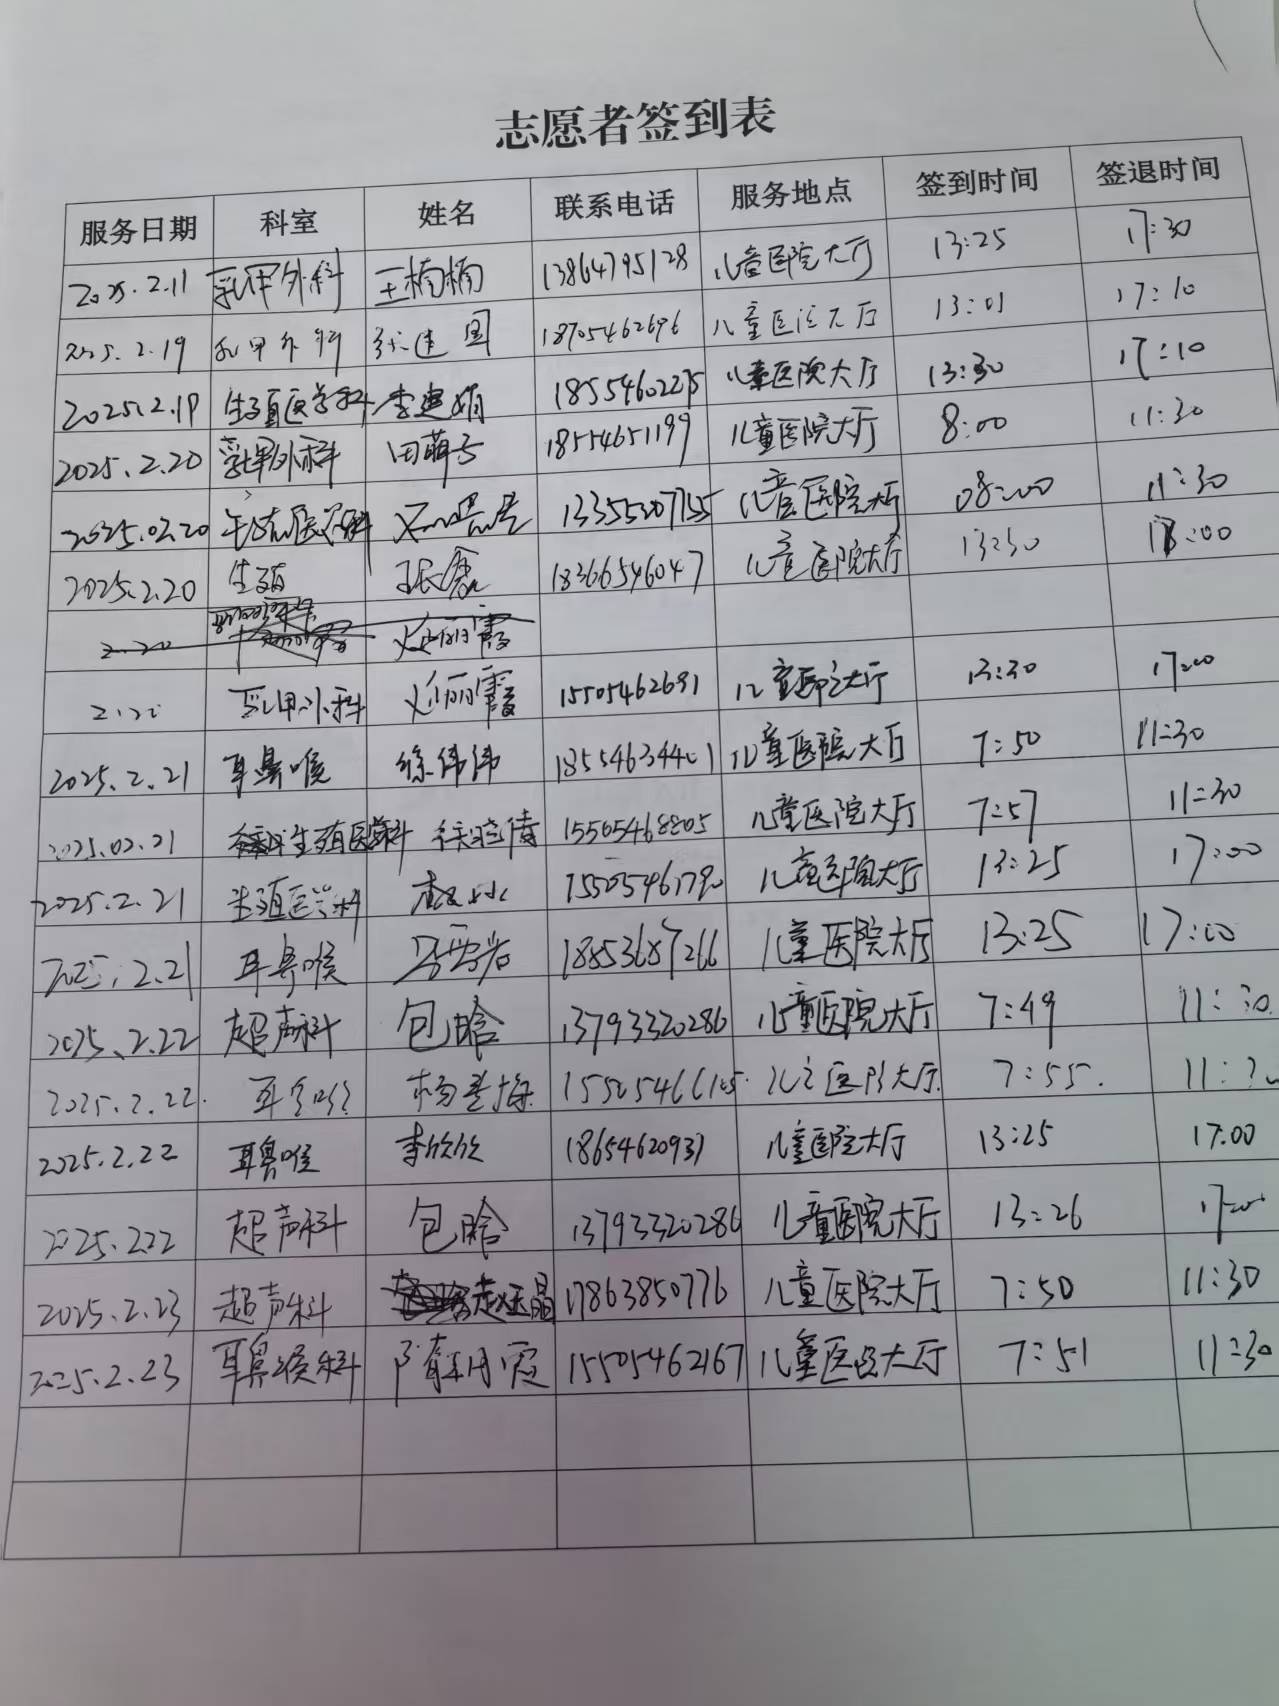 志愿者签到表
服务日期 科室 姓名 联系电话 服务地点 签到时间 签退时间
2025.2.11 乳甲外科 王楠楠 13864795128 儿童医院大厅 13:25 17:30
2025.2.19 乳甲外科 张建国 18705462696 儿童医院大厅 13:01 17:10
2025.2.19 生殖医学科 李建娟 18554602275 儿童医院大厅 13:30 17:10
2025.2.20 乳甲外科 田萌子 18554651199 儿童医院大厅 8:00 11:30
2025.02.20 生殖医学科 儿童医院大厅 08:00 11:30
2025.2.20 生殖 张磊 18366546047 儿童医院大厅 13:30 17:00
2.20
2.20 乳甲外科 丽霞 15505462691 儿童医院大厅 13:30 17:00
2025.2.21 耳鼻喉 徐伟伟 18554634401 儿童医院大厅 7:50 11:30
2025.02.21 生殖医学科 徐晓倩 15505468805 儿童医院大厅 7:57 11:30
2025.2.21 生殖医学科 15505461790 儿童医院大厅 13:25 17:00
2025.2.21 耳鼻喉 18853687266 儿童医院大厅 13:25 17:00
2025.2.22 超声科 包晗 13793320286 儿童医院大厅 7:49 11:30
2025.2.22. 耳鼻喉 儿童医院大厅. 7:55. 11:30
2025.2.22 耳鼻喉 李欣欣 18654620937 儿童医院大厅 13:25 17:00
2025.2.22 超声科 包晗 13793320286 儿童医院大厅 13:26 17:00
2025.2.23 超声科 赵玉晶 17863850776 儿童医院大厅 7:50 11:30
2025.2.23 耳鼻喉科 隋月霞 15505462167 儿童医院大厅 7:51 11:30